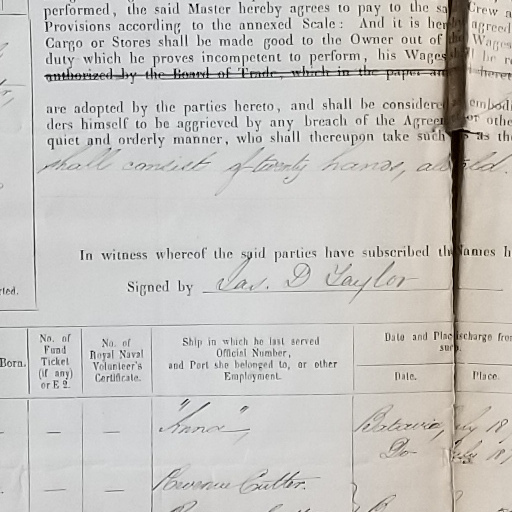 performed, the said Master hereby agrees to pay to the sa Crew a
Provisions according to the annexed Scale: And it is her agreed
Cargo or Stores shall be made good to the Owner out of Wages
duty which he proves incompetent to perform, his Wages be re
authorized by the Board of Trade, which in the paper an heret
are adopted by the parties hereto, and shall be considere embodi
ders himself to be aggrieved by any breach of the Agreem or othe
quiet and orderly manner, who shall thereupon take such as the
shall consist of twenty hands, all told.
In witness whereof the said parties have subscribed th Names h
Signed by Jas. D Taylor
rted.
Born.
No. of Fund Ticket (if any) or E 2.
No. of Royal Naval Volunteer's Certificate.
Ship in which he last served Official Number, and Port she belonged to, or other Employment.
Date and Plac ischarge from suc
Date. Place.
— — "Anna", Batavia, July 18
Do July 18
— — Revenue Cutter.